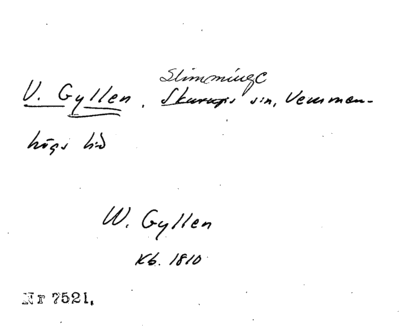 Slimminge
V. Gyllen, Skurups sn, Vemmen-
högs hd
W. Gyllen
Kb. 1810
Nr 7521.